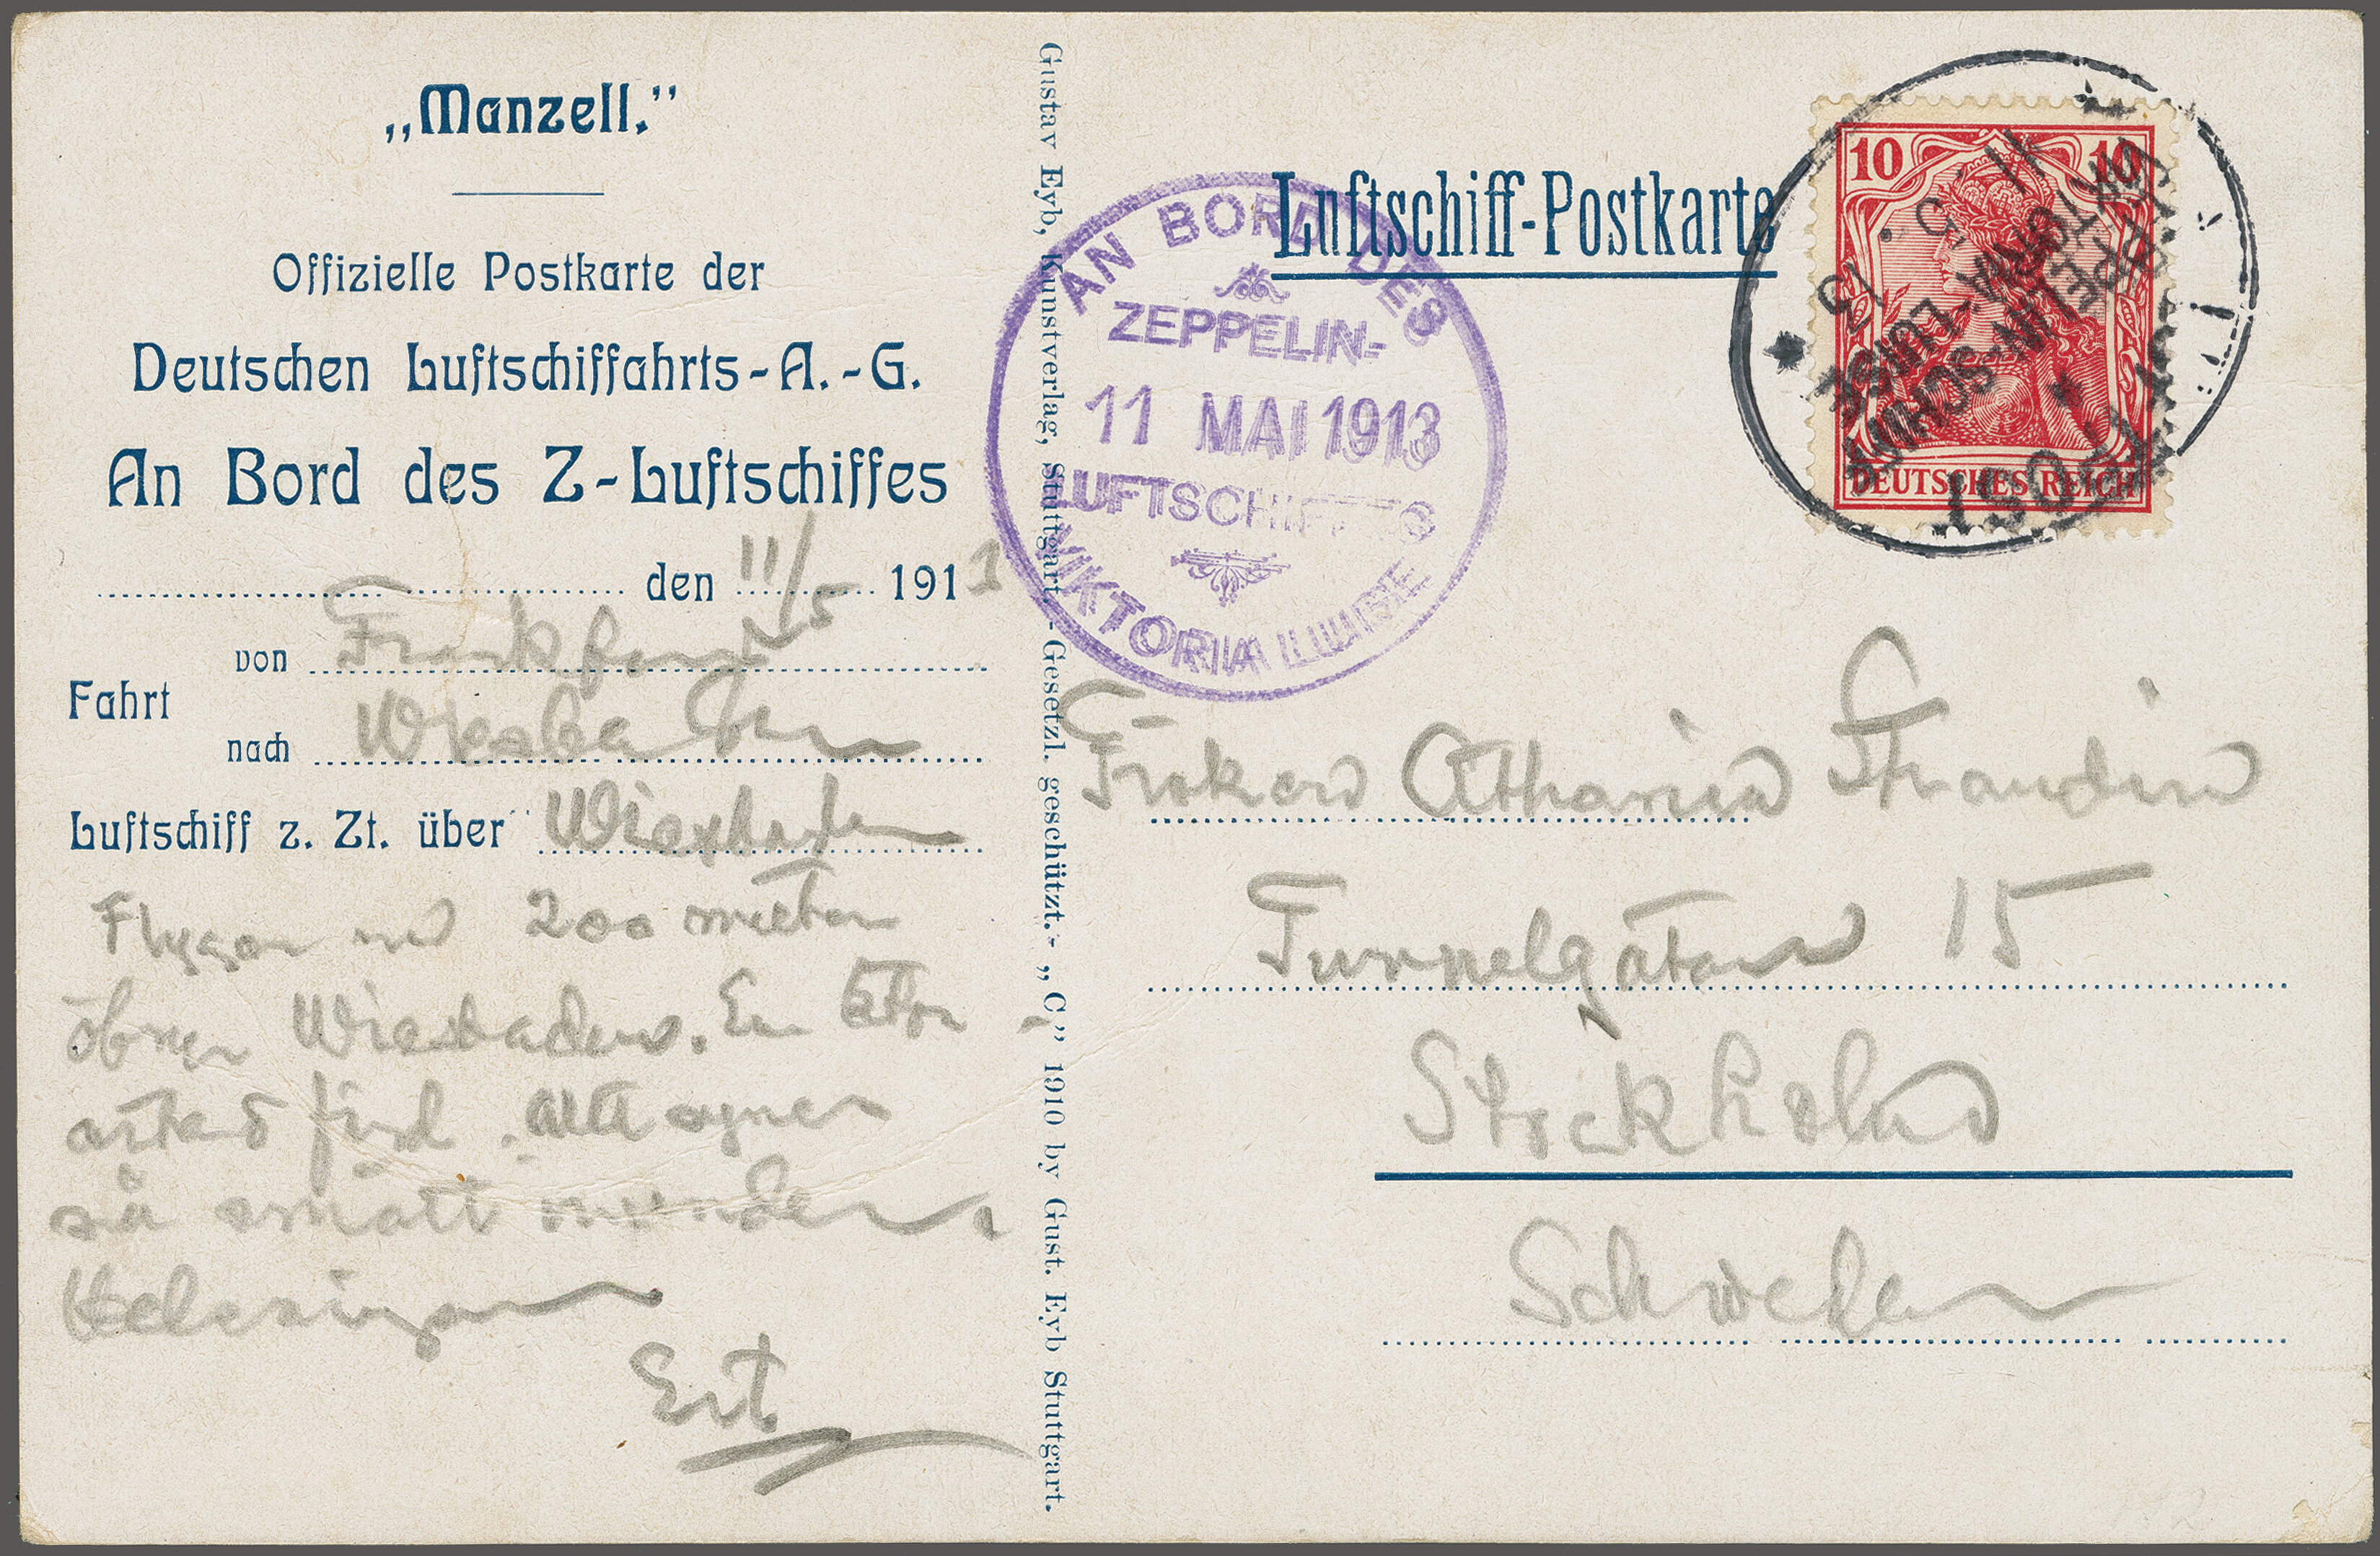 „Manzell.”
Offizielle Postkarte der
Deutschen Luftschiffahrts-A.-G.
An Bord des Z-Luftschiffes
den 11/5 191
Fahrt
von Frankfurt
nach Wiesbaden
Luftschiff z. Zt. über Wiesbaden
Flyger nu 200 meter
öfver Wiesbaden. En
färd.
så smått
Helsingar
Gustav Eyb, Kunstverlag, Stuttgart. - Gesetzl. geschützt. - „C” 1910 by Gust. Eyb Stuttgart.
Luftschiff-Postkarte
AN BORD DES
ZEPPELIN-
11 MAI 1913
LUFTSCHIFFES
VIKTORIA LUISE
10 10
DEUTSCHES REICH
POST
11.5.13
LUFTSCHIFF
VIKTORIA-LUISE
Fröken Strandin
Tunnelgatan 15
Stockholm
Schweden